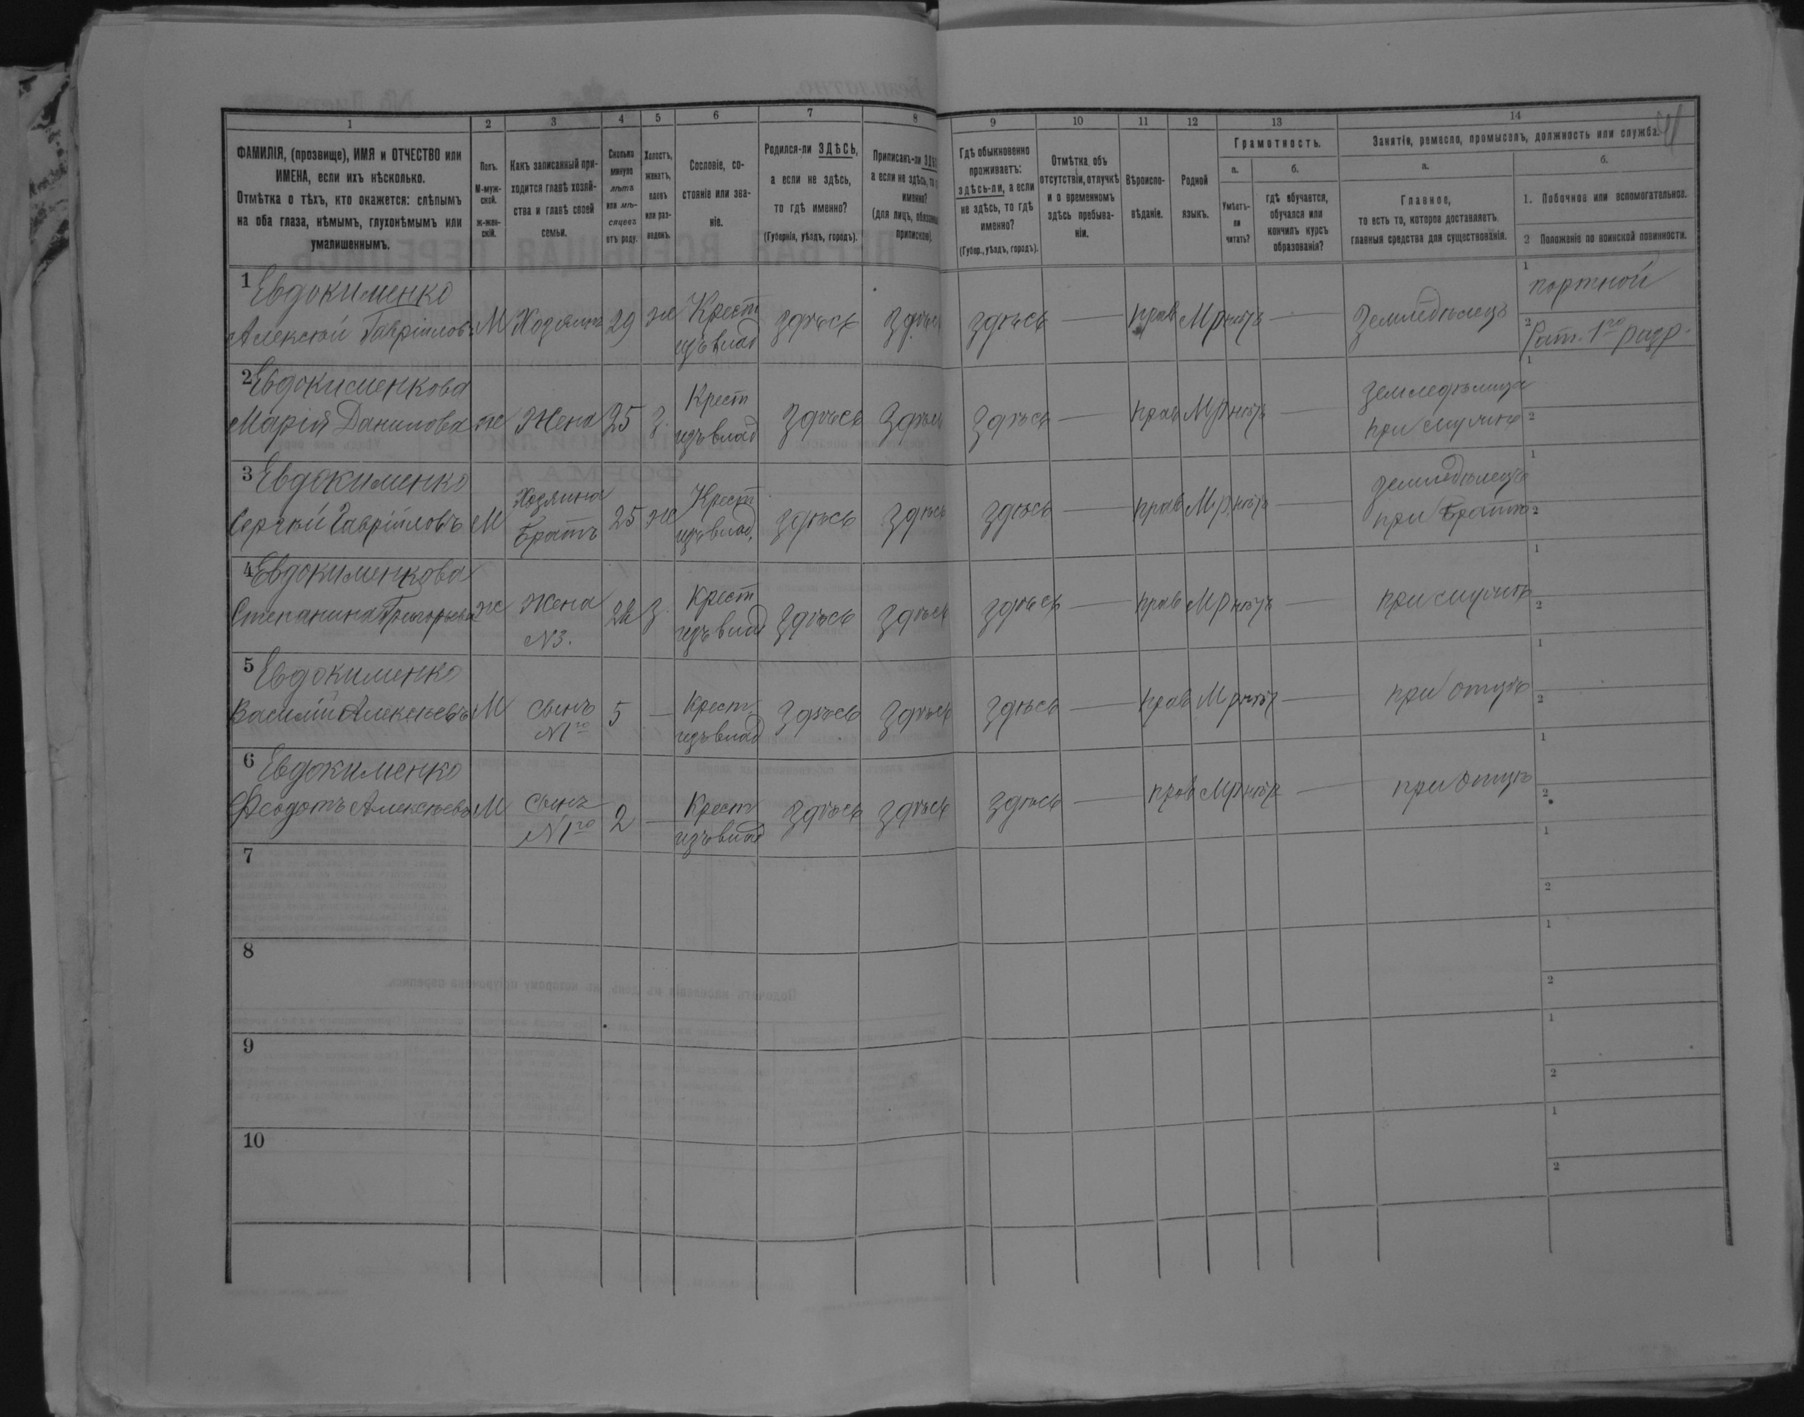 1 2 3 4 5 6 7 8 9 10 11 12 13 14
ФАМИЛІЯ, (прозвище), ИМЯ и ОТЧЕСТВО или
ИМЕНА, если ихъ нѣсколько.
Отмѣтка о тѣхъ, кто окажется: слѣпымъ
на оба глаза, нѣмымъ, глухонѣмымъ или
умалишеннымъ.
Полъ.
М-муж-
ской.
Ж-жен-
скій.
Какъ записанный при-
ходится главѣ хозяй-
ства и главѣ своей
семьи.
Сколько
минуло
лѣтъ
или мѣ-
сяцевъ
отъ роду.
Холостъ,
женатъ,
вдовъ
или раз-
веденъ.
Сословіе, со-
стояніе или зва-
ніе.
Родился-ли ЗДѢСЬ,
а если не здѣсь,
то гдѣ именно?
(Губернія, уѣздъ, городъ).
Приписанъ-ли
а если не здѣсь, то
именно?
(для лицъ,
припискою).
Гдѣ обыкновенно
проживаетъ:
здѣсь-ли, а если
не здѣсь, то гдѣ
именно?
(Губер., уѣздъ, городъ).
Отмѣтка объ
отсутствіи, отлучкѣ
и о временномъ
здѣсь пребыва-
ніи.
Вѣроиспо-
вѣданіе.
Родной
языкъ.
Грамотность.
а.
Умѣетъ-
ли
читать?
б.
гдѣ обучается,
обучался или
кончилъ курсъ
образованія?
Занятіе, ремесло, промыселъ, должность или служба.
а.
Главное,
то есть то, которое доставляетъ
главныя средства для существованія.
б.
1. Побочное или вспомогательное.
2 Положеніе по воинской повинности.
1 Евдокименко
Алексѣй Гавріиловъ М Хозяинъ 29 ж Крест
изъ влад здѣсь здѣсь здѣсь — прав Мр нѣтъ — Земледѣлецъ
1 портной
2 Рат. 1го разр.
2 Евдокименкова
Марія Данилова ж Жена 25 з. Крест
изъ влад здѣсь здѣсь здѣсь — прав Мр нѣтъ — земледѣлица
при мужѣ
1
2
3 Евдокименко
Сергѣй Гавріиловъ М Хозяина
братъ 25 ж Крест
изъ влад. здѣсь здѣсь здѣсь — прав Мр нѣтъ — земледѣлецъ
при братѣ
1
2
4 Евдокименкова
Степанида Григорьева ж Жена
N3. з. Крест
изъ влад здѣсь здѣсь здѣсь — прав Мр нѣтъ — при мужѣ
1
2
5 Евдокименко
Василій Алексѣевъ М сынъ
N1го 5 — Крест
изъ влад здѣсь здѣсь здѣсь — прав Мр нѣтъ — при отцѣ
1
2
6 Евдокименко
Феодотъ Алексѣевъ М Сынъ
N1го 2 — Крест
изъ влад здѣсь здѣсь здѣсь — прав Мр нѣтъ — при отцѣ
1
2
7
1
2
8
1
2
9
1
2
10
1
2